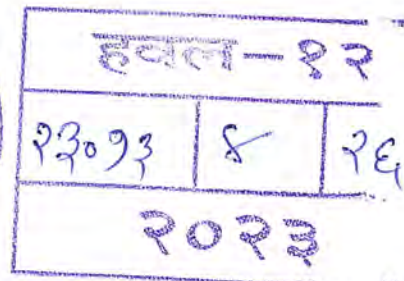 हवल-१२
२३०१३ ४ २६
२०२३